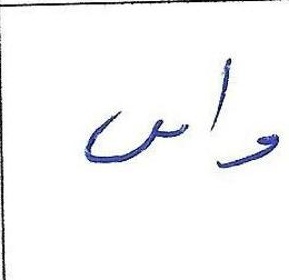 واس